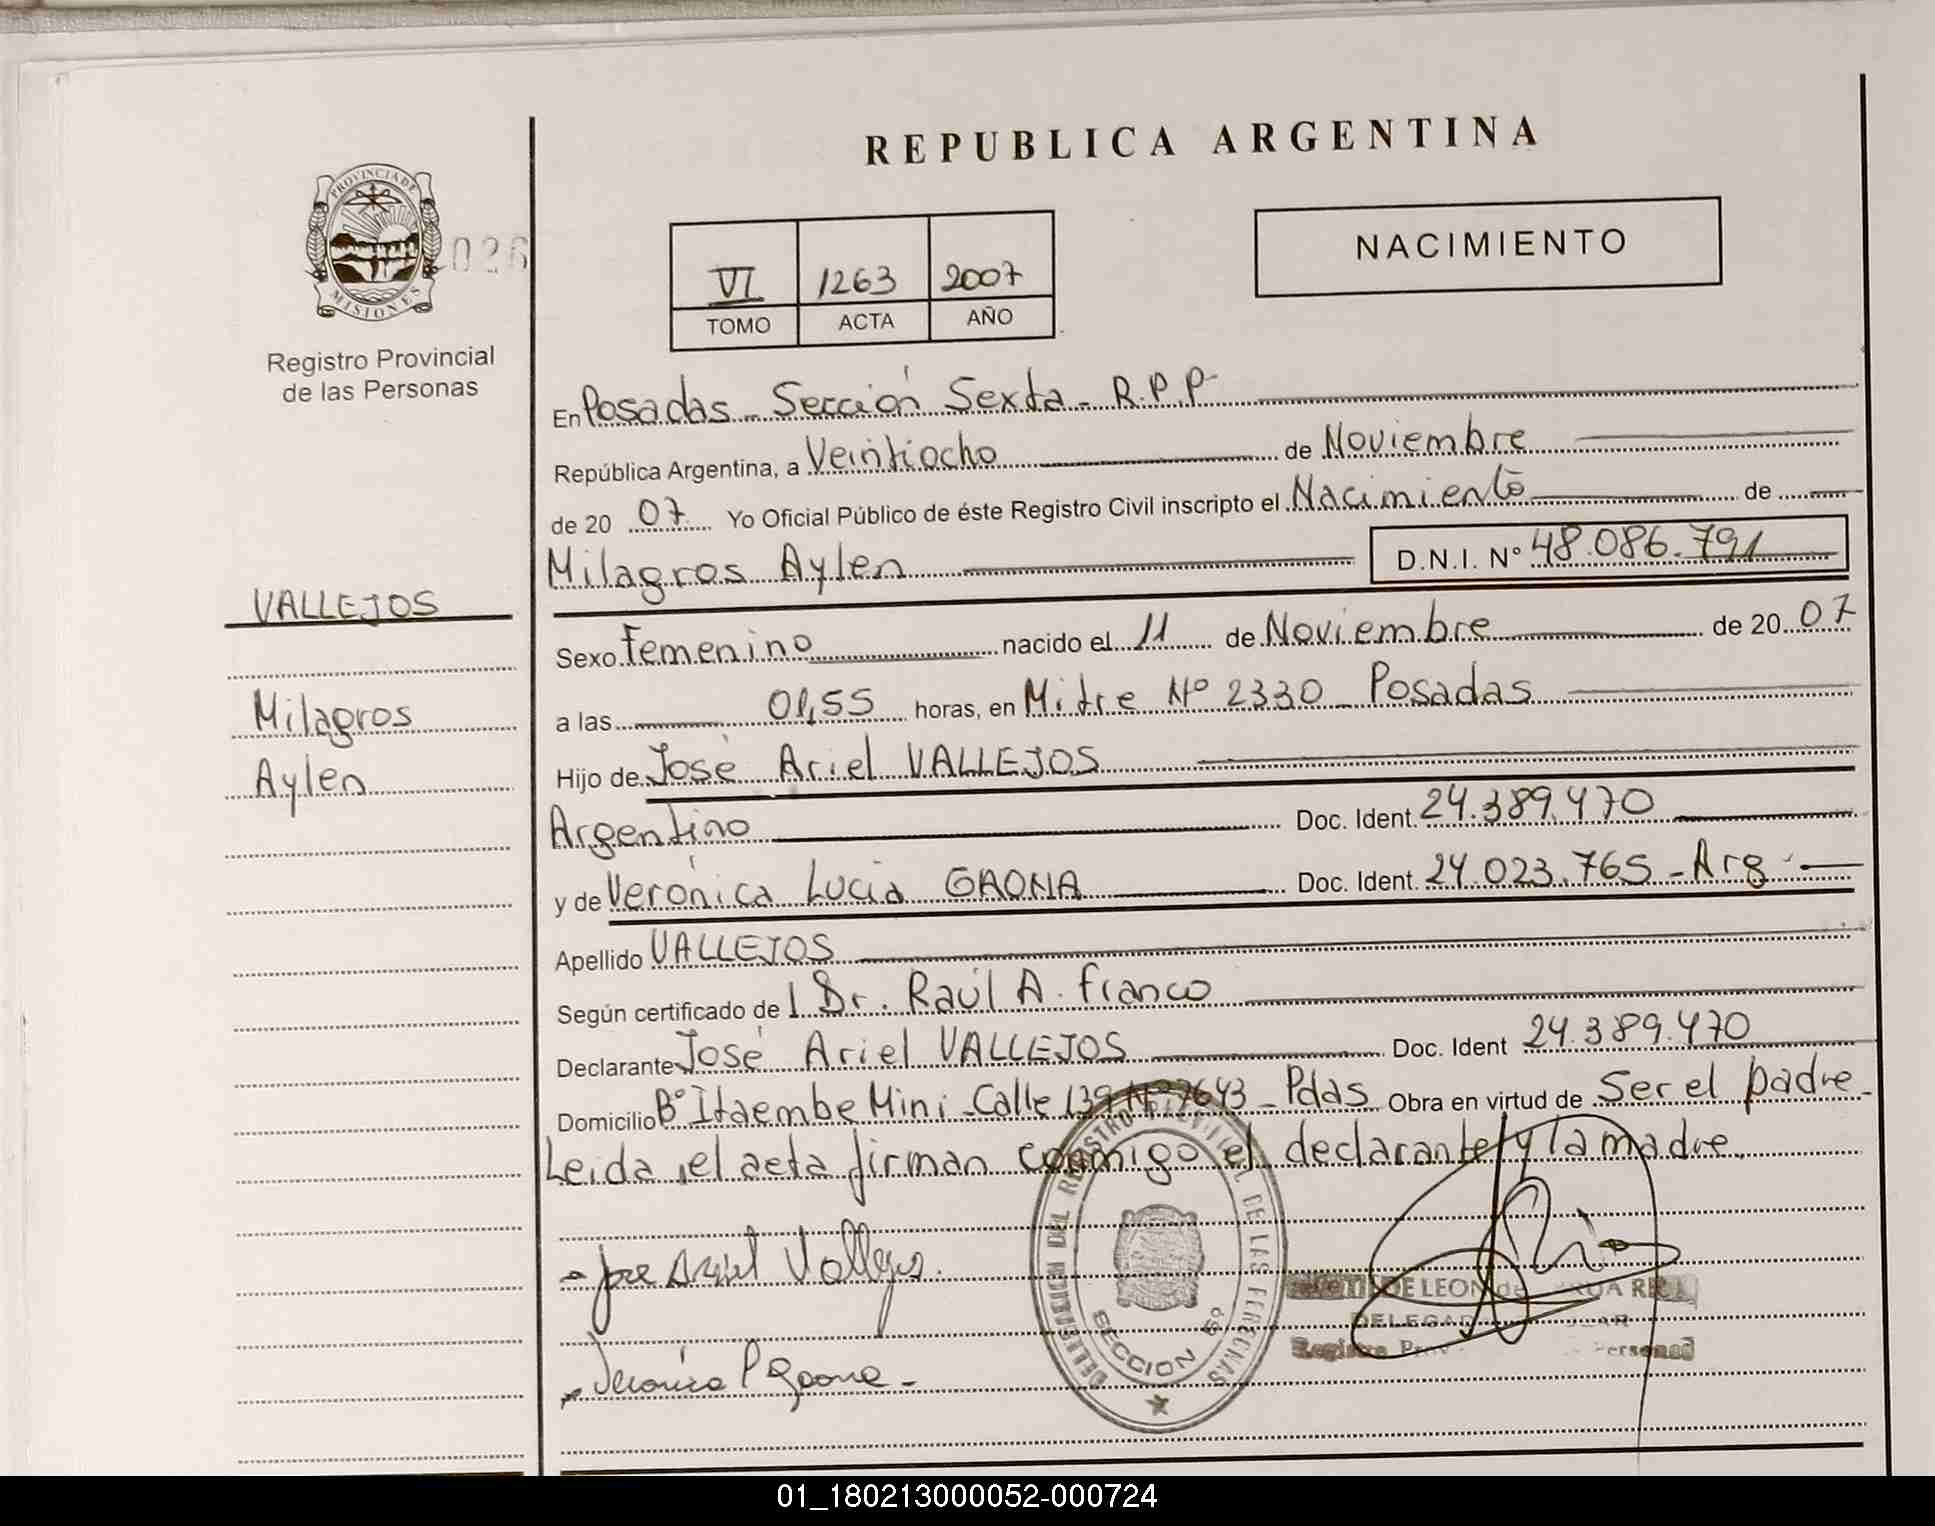 REPUBLICA ARGENTINA
PROVINCIA DE
MISIONES
026
Registro Provincial
de las Personas
VI 1263 2007
TOMO ACTA AÑO
NACIMIENTO
En Posadas Sección Sexta - R.P.P-
República Argentina, a Veintiocho de Noviembre
de 20 07 Yo Oficial Público de éste Registro Civil inscripto el Nacimiento de
Milagros Aylen D.N.I. Nº 48.086.791
VALLEJOS
Milagros
Aylen
Sexo Femenino nacido el 11 de Noviembre de 20 07
a las 01,55 horas, en Mitre Nº 2330 Posadas
Hijo de José Ariel VALLEJOS
Argentino Doc. Ident. 24.389.470
y de Verónica Lucia GAONA Doc. Ident. 24.023.765 - Arg
Apellido VALLEJOS
Según certificado de l Dr. Raúl A. Franco
Declarante José Ariel VALLEJOS Doc. Ident 24.389.470
Domicilio Bº Itaembe Mini - Calle 139 Nº 7643 - Pdas Obra en virtud de Ser el padre -
Leida el acta firman conmigo el declarante y la madre.
- Jose Ariel Vallejos.
DEL REGISTRO DE LAS PERSONAS
SECCION 6º
DE LEON de
Veronica Gaona -
01_180213000052-000724